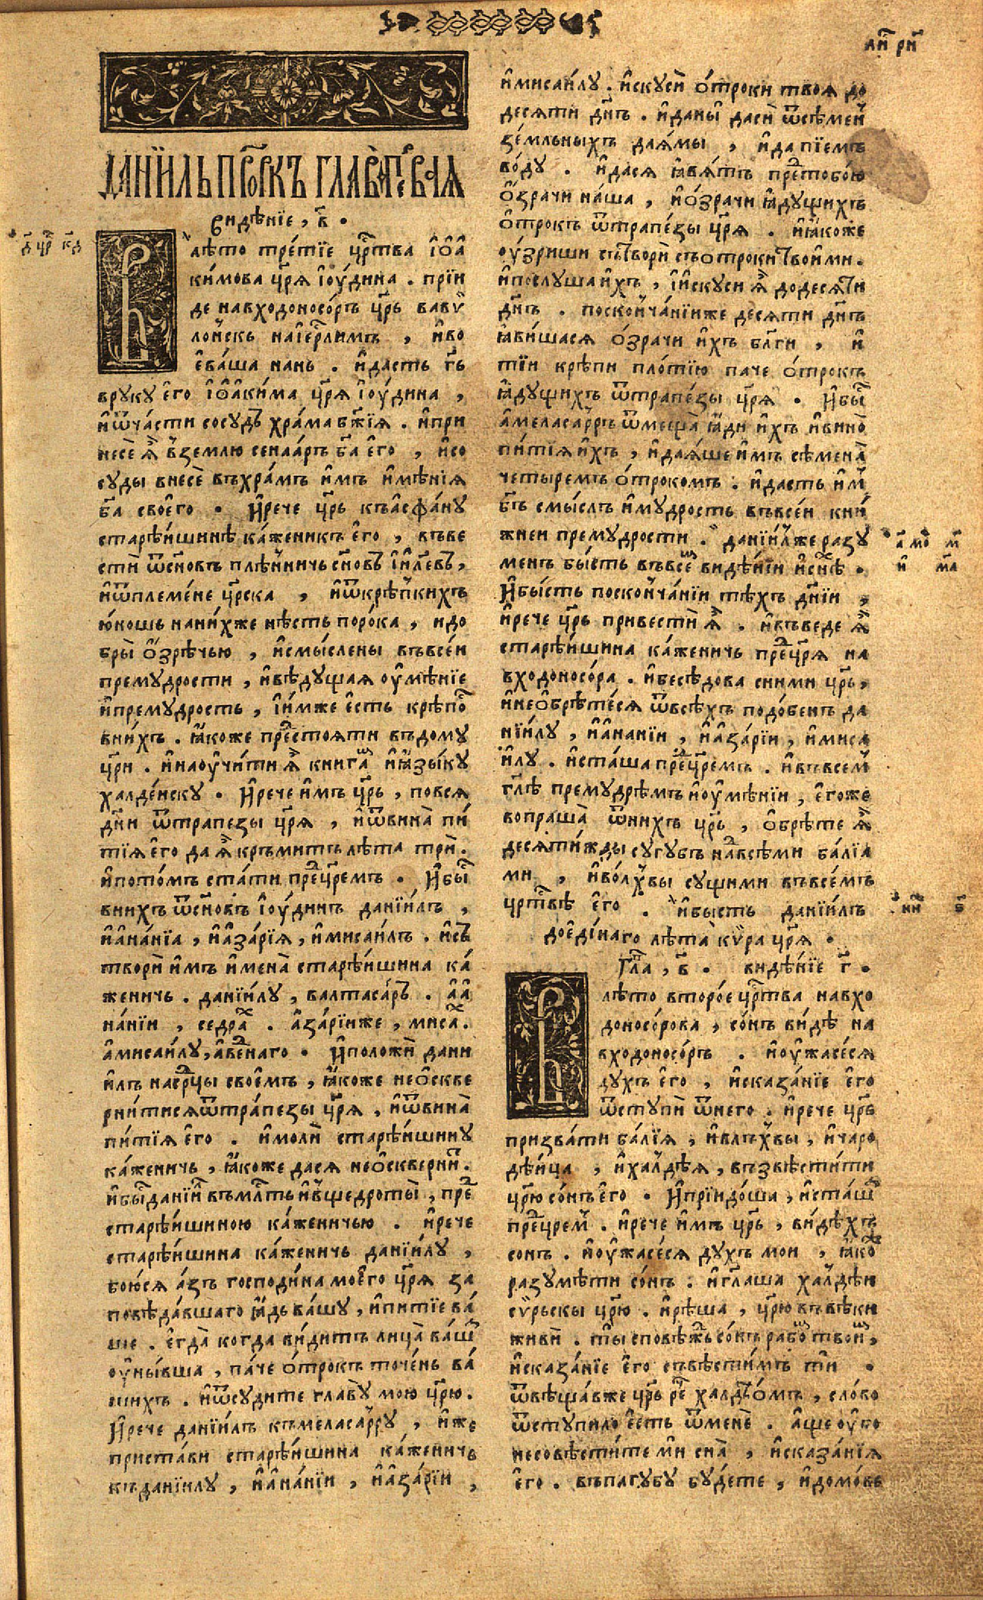 ли҃ рн҃
ДАНІ́ИЛЬ ПРР҇ОКЪ ГЛАВА̀ ПЕ́РВАꙖ
ви́дѣнїе, в҃ .
д҃ цр҇ к҃д
В лѣ́то тре́тїе цр҇тва і҆ѡ҆а
ки́мова цр҃ѧ і҆оу́дина . прїи
де навходоносо́ръ цр҃ь вавѵ
ло́йскъ на і҆ер҇ли́мъ , и҆во
ева́ша нань . и҆дастъ гь҃
вруку е҆го і҆ѡ҆аки́ма цр҃ѧ і҆оу́дина ,
и҆ѿча́сти сосу́дъ хра́ма бж҃їѧ . и҆при
несѐ ѧ҆̀ вземлю сенаа́ръ ба҃ е҆го , и҆со
су́ды внесѐ въхра́мъ и҆мъ и҆мѣ́нїѧ
ба҃ свое҆го . И҆рече цр҃ь къа҆сфа́ну
старѣ́йшинѣ ка́женикъ е҆го , въве
стѝ ѿсн҃овъ плѣ́нничь сн҃овъ і҆и҃левъ ,
и҆ѿплеме́не цр҇ска , и҆ѿкрѣ́пкихъ
ю҆ношь нани́хже нѣ́сть поро́ка , и҆до
бры̀ ѻ҆зрѣ́чью , и҆смы́слены въвсе́и
прему́дрости , и҆вѣ́дущаѧ ѹ҆мѣ́нїе
и҆прему́дрость , і҆и҆́мже е҆сть крѣ́пос҇
вни́хъ . ꙗ҆́коже пред҇стоѧти въдому
цр҃и . и҆нау҆чи́ти ѧ҆̀ книгам҇ и҆ꙗ҆зы́ку
халде́йску . И҆рече и҆мъ цр҃ь , повсѧ
дн҃и ѿтрапе́зы цр҃ѧ , и҆ѿвина̀ пи
тїѧ̀ е҆го да ѧ҆̀ кръмитъ лѣ́та трѝ .
и҆пото́мъ ста́ти пред҇цр҃емъ . И҆бы́с҇
вни́хъ ѿсн҃овъ і҆оу́динъ данїи́лъ ,
и҆а҆на́нїа , и҆а҆за́рїѧ , и҆мисаи́лъ . и҆съ
творѝ и҆мъ и҆мена̀ старѣ́йшина ка́
женичь . данїи́лу , валтаса́ръ . а҆а҆
на́нїи , седра́х҇ . а҆за́рїиже , миса́х҇ .
а҆мисаи́лу , а҆вде́наго . И҆положѝ дани
и҆лъ насрд҇цы свое́мъ , ꙗ҆́коже не ѻ҆скве
рни́тисѧ ѿтра́пезы цр҃ѧ , и҆ѿвина̀
пи́тїѧ е҆го . и҆молѝ старѣ́йшину
ка́женичь , ꙗ҆́коже дасѧ не ѻ҆скверни́т҇ .
и҆бы́с҇ данїи́л҇ въмл҇ть и҆вщедроты̀ , пред҇
старѣ́йшиною ка́женичью . и҆рече
старѣ́йшина ка́женичь данїи́лу ,
бою́сѧ а҆зъ господи́на мое҆го цр҃ѧ за
повѣ́давшаго ꙗ҆́дь ва́шу , и҆питїе ва́
ше . е҆гда̀ когда ви́дитъ лица̀ ва́ш҇
ѹ҆ны́вша , паче ѻ҆трокъ точе́нь ва́
шихъ . и҆ѡ҆су́дите главу̀ мою̀ цр҃ю .
И҆рече данїи́лъ къмеласа́рру , и҆́же
приста́ви старѣ́йшина ка́женичь
къданїи́лу , и҆а҆на́нїи , и҆а҆за́рїи ,
и҆мисаи́лу . и҆скусѝ ѻ҆́троки твоѧ до
десѧти дн҃ъ . и҆даны̀ дасѧ̀ ѿсѣ́мен҇
зе́мльныхъ даѧ́мы , и҆да пїемъ
во́ду . и҆дасѧ ꙗ҆вѧ́тъ пред҇тобо́ю
ѻ҆́зрачи на́ша , и҆ѻ҆зрачи ꙗ҆ду́щихъ
ѻ҆трокъ ѿтрапе́зы цр҃ѧ . и҆ꙗ҆́коже
ѹ҆́зриши сътворѝ съѻ҆троки твои́ми .
и҆послуша и҆́хъ , і҆и҆скуси ѧ҆̀ додесѧ́ти
дн҃ъ . поскончанїиже десѧти дн҃ъ
ꙗ҆ви́шасѧ ѻ҆зрачи и҆́хъ бла́ги , и҆
тїи крѣ́пи пло́тїю паче ѻ҆трокъ
ꙗ҆ду́щихъ ѿтрапе́зы цр҃ѧ . И҆бы́с҇
а҆меласа́рръ ѿмеща̀ ꙗ҆́ди и҆́хъ и҆вино̀
пи́тїѧ и҆́хъ , и҆даѧ́ше и҆мъ сѣмена̀
четыремъ ѻ҆трокомъ . и҆дастъ и҆м҇
бг҃ъ смыслъ и҆мудрость въвсе́и кни́
жнеи прему́дрости . данїи́лже разу
менъ бы́сть въвсе́м҇ виде́нїи и҆сн҃ѣ .
а҃ мо҇ м҃
и҃ м҃а
И҆бы́сть поскончанїи тѣ́хъ дн҃їи ,
и҆рече цр҃ь привестѝ ѧ҆̀ . и҆въведе ѧ҆̀
старѣ́йшина ка́женичь пред҇цр҃ѧ на
входоно́сора . и҆бесѣ́дова сни́ми цр҃ь ,
и҆необрѣ́тесѧ ѿвсѣ́хъ подо́бенъ да
нїи́лу , и҆а҆на́нїи , и҆а҆за́рїи , и҆миса
и҆́лу . и҆ста́ша пред҇цр҃емъ . и҆въвсе́м҇
гл҃ѣ прему́дрѣмъ и҆ѹ҆мѣ́нїи , е҆гоже
вопраша̀ ѿнихъ цр҃ь , ѻ҆брѣ́те ѧ҆̀
десѧти́жды сугубъ над҇всѣ́ми ба́лїѧ
ми , и҆волхвы су́щими въвсе́мъ
цр҇твѣ е҆го . и҆бы́сть данїи́лъ
кн҃ в҃
доеди́наго лѣ́та кѵ́ра цр҃ѧ .
Гла҇ , в҃ . видѣ́нїе г҃ .
В лѣ́то второ́е цр҇тва навхо
доносо́рова , со́нъ ви́дѣ на
входоносо́ръ . и҆ѹ҆жасе́сѧ
духъ е҆го , и҆сказа́нїе е҆го
ѿступѝ ѿнего . и҆рече цр҃ь
призва́ти ба́лїѧ , и҆влъхвы , и҆чаро
дѣ́йца , и҆халдѣ́ѧ , възвѣсти́ти
цр҃ю со́нъ е҆го . И҆прїидо́ша , и҆ста́ш҇
пред҇цр҃ем҇ . и҆рече и҆мъ цр҃ь , ви́дѣхъ
сонъ . и҆ѹ҆жасе́сѧ духъ мои , ꙗ҆́ко
разумѣ́ти со́нъ . и҆гл҃аша халдѣ́и
сѵ́рьскы цр҃ю . и҆рѣ́ша , цр҃ю въвѣ́ки
живѝ . ты̀ сповѣ́ждь со́нъ рабом҇ твои́м҇ ,
и҆сказа́нїе е҆го съвѣсти́мъ тѝ .
ѿвѣща́вже цр҃ь реч҇ халдѣ́ѻмъ , сло́во
ѿступи́ло е҆сть ѿменѐ . а҆ще ѹ҆́бо
несовѣсти́те мѝ сна̀ , и҆сказа́нїѧ
е҆го . въпагубу бу́дете , и҆домо́ве